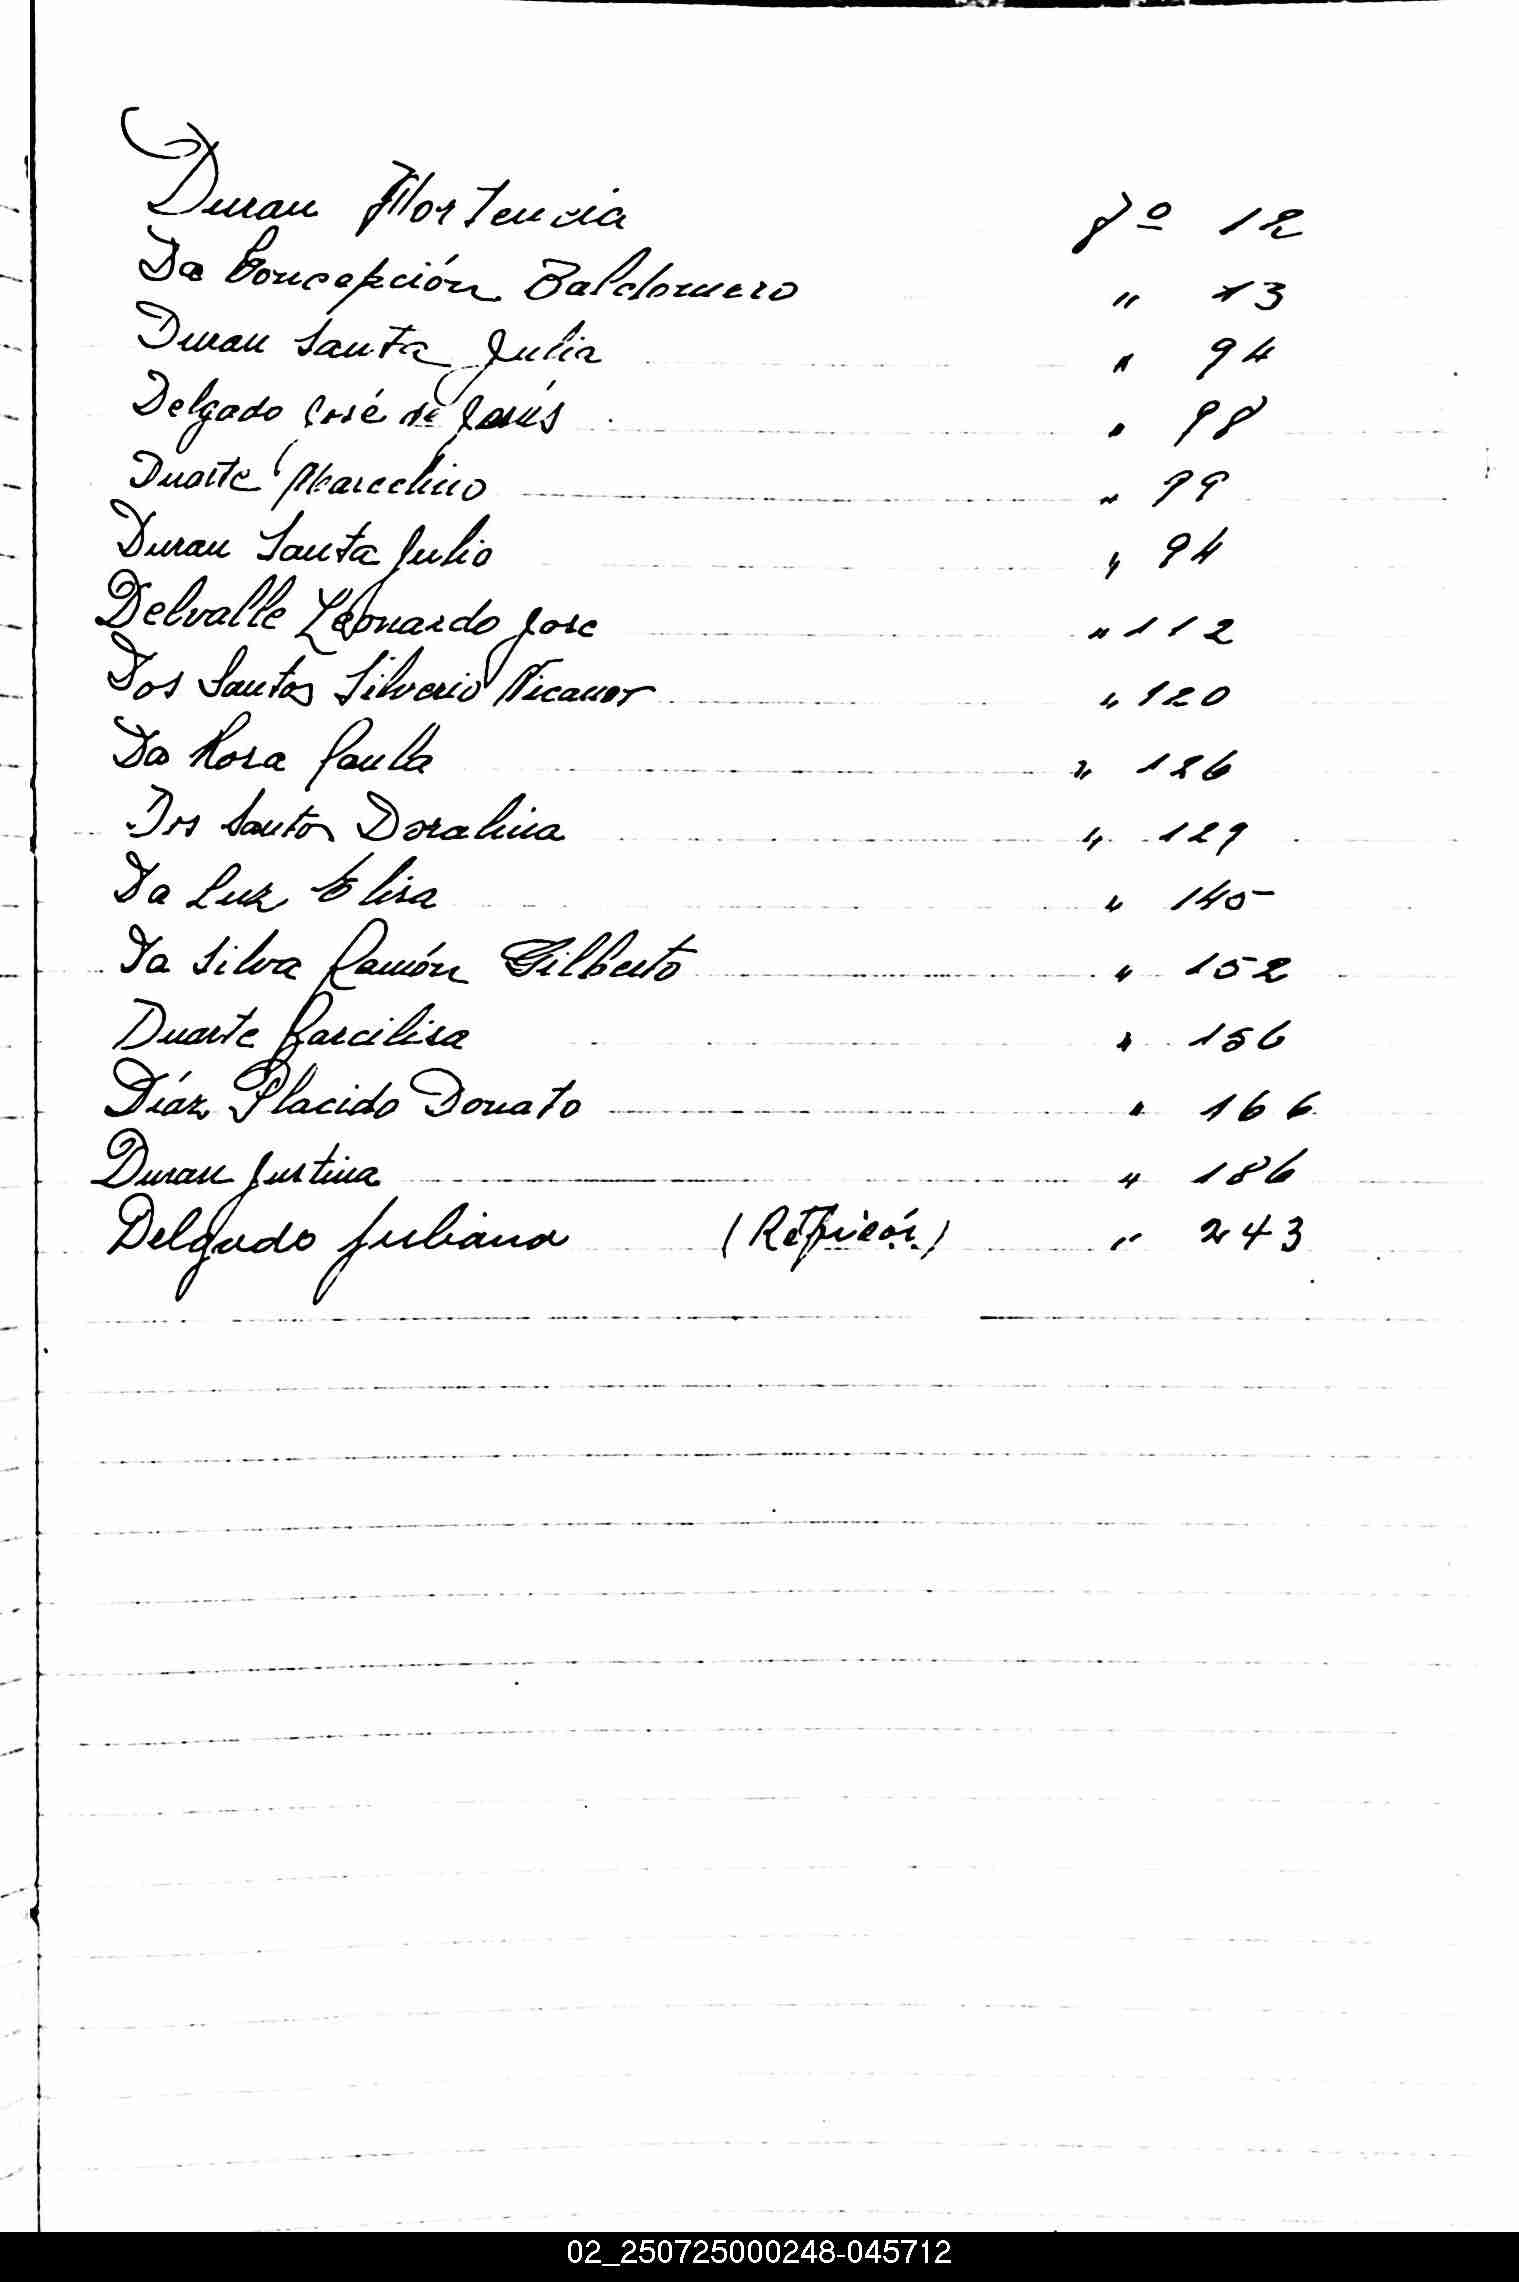 Duran Hortencia fº 12
Da Concepción Baldomero " 13
Duran Santa Julia " 94
Delgado José de Jesús " 98
Duarte Marcelino " 99
Duran Santa Julio " 94
Delvalle Leonardo Jose " 112
Dos Santos Silverio Nicanor " 120
Da Rosa Paula " 126
Dos Santos Doralina " 129
Da Luz Elisa " 145
Da Silva Ramón Gilberto " 152
Duarte Garcilisa " 156
Díaz Placido Donato " 166
Duran Justina " 186
Delgado Juliana " 243
02_250725000248-045712